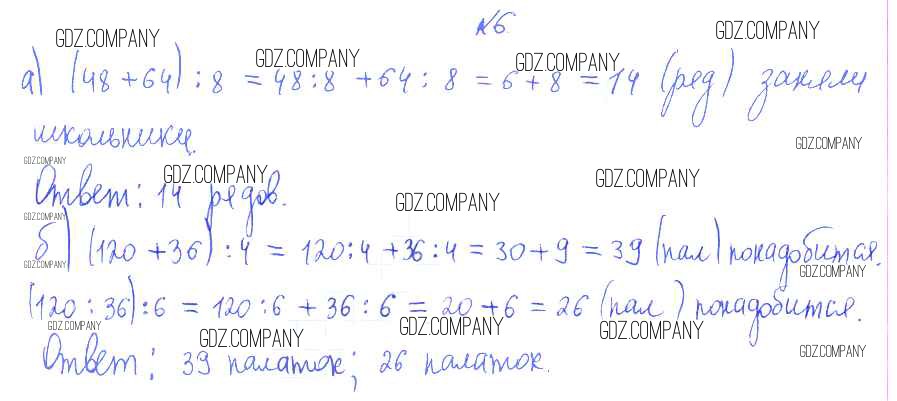 №6
GDZ.COMPANY GDZ.COMPANY GDZ.COMPANY GDZ.COMPANY
а) (48+64) : 8 = 48:8 + 64 : 8 = 6 + 8 = 14 (ряд) заняли
школьники.
GDZ.COMPANY GDZ.COMPANY GDZ.COMPANY GDZ.COMPANY
Ответ: 14 рядов.
GDZ.COMPANY GDZ.COMPANY
б) (120 + 36) : 4 = 120:4 + 36:4 = 30 + 9 = 39 (пал) понадобится.
GDZ.COMPANY GDZ.COMPANY
(120 : 36) : 6 = 120 : 6 + 36 : 6 = 20 + 6 = 26 (пал) понадобится.
GDZ.COMPANY GDZ.COMPANY GDZ.COMPANY GDZ.COMPANY GDZ.COMPANY
Ответ: 39 палаток; 26 палаток.